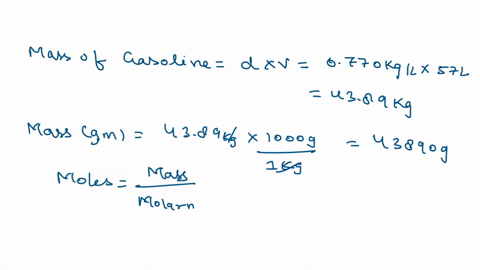 Mass of Gasoline = d x V = 0.770 Kg/L x 57L
= 43.89 Kg
Mass (gm) = 43.89 Kg x 1000g / 1 Kg = 43890g
Moles = Mass / Molarn